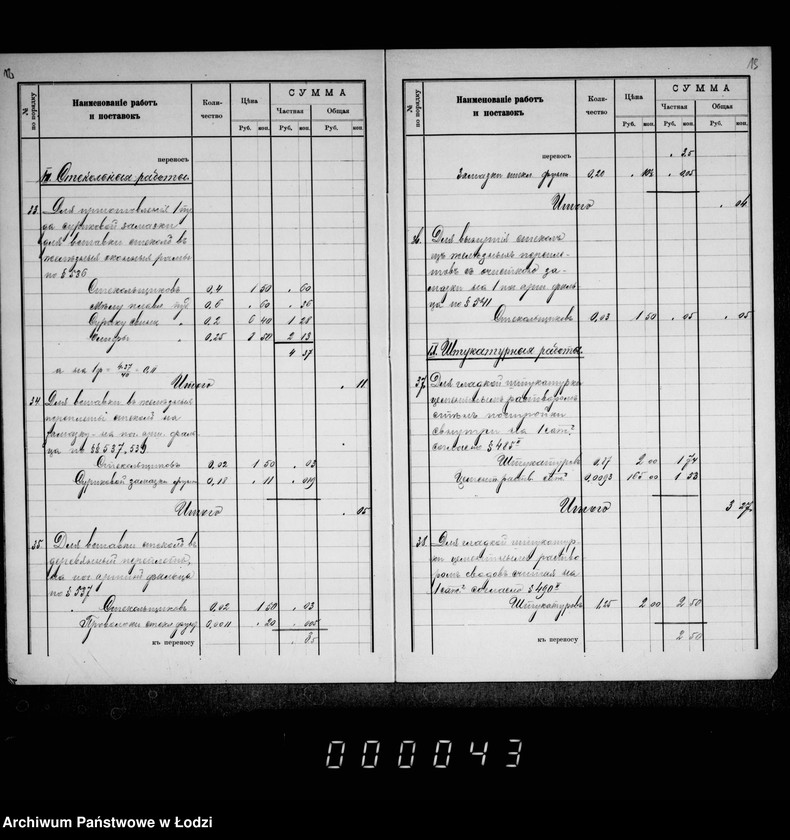 12
№ по порядку
Наименованіе работъ и поставокъ
Коли-чество
Цѣна
СУММА
Частная
Общая
Руб. коп. Руб. коп. Руб. коп.
переносъ
Стекольныя работы.
33. Для приготовленія 1 пу-
да суриковой замазки
для вставки стеколъ въ
желѣзныя оконныя рамы
по § 536
Стекольщиковъ 0,4 1 50 . 60
Мѣлу плавл. пуд 0,6 . 60 . 36
Сурику свинц. " 0,2 6 40 1 28
" 0,25 8 50 2 13
4 37
а на 1 ф = 4.37/40 = 0.11
Итого . 11
34. Для вставки въ желѣзныя
переплеты стеколъ на
замазку на пог. арш. фаль-
ца по §§ 537, 539
Стекольщиковъ 0,02 1 50 . 03
Суриковой замазки фунт 0,18 . 11 . 019
Итого . 05
35. Для вставки стеколъ въ
деревянный переплетъ,
на пог. аршинъ фальца
по § 537
Стекольщиковъ 0,02 1 50 . 03
Проволоки 0,0011 . 20 . 005
къ переносу
13
№ по порядку
Наименованіе работъ и поставокъ
Коли-чество
Цѣна
СУММА
Частная
Общая
Руб. коп. Руб. коп. Руб. коп.
переносъ . 35
Замазки стекл. фунт 0,20
Итого . 06
36. Для вынутія стеколъ
изъ желѣзныхъ перепле-
товъ съ очисткою за-
мазки на 1 по арш. фаль-
ца по § 541
Стекольщиковъ 0,03 1 50 . 05 . 05
IX. Штукатурныя работы.
37. Для гладкой штукатурки
цементнымъ растворомъ
стѣнъ постройки
снутри на 1 саж.²
согласно § 485
Штукатуровъ 0,87 2 00 1 74
Цемент. раств. 0,0093 165 00 1 53
Итого 3 27
38. Для гладкой штукатур-
ки цементнымъ раство-
ромъ сводовъ считая на
1 саж.² согласно § 490
Штукатуровъ 1,25 2 00 2 50
къ переносу 2 50
000043
Archiwum Państwowe w Łodzi